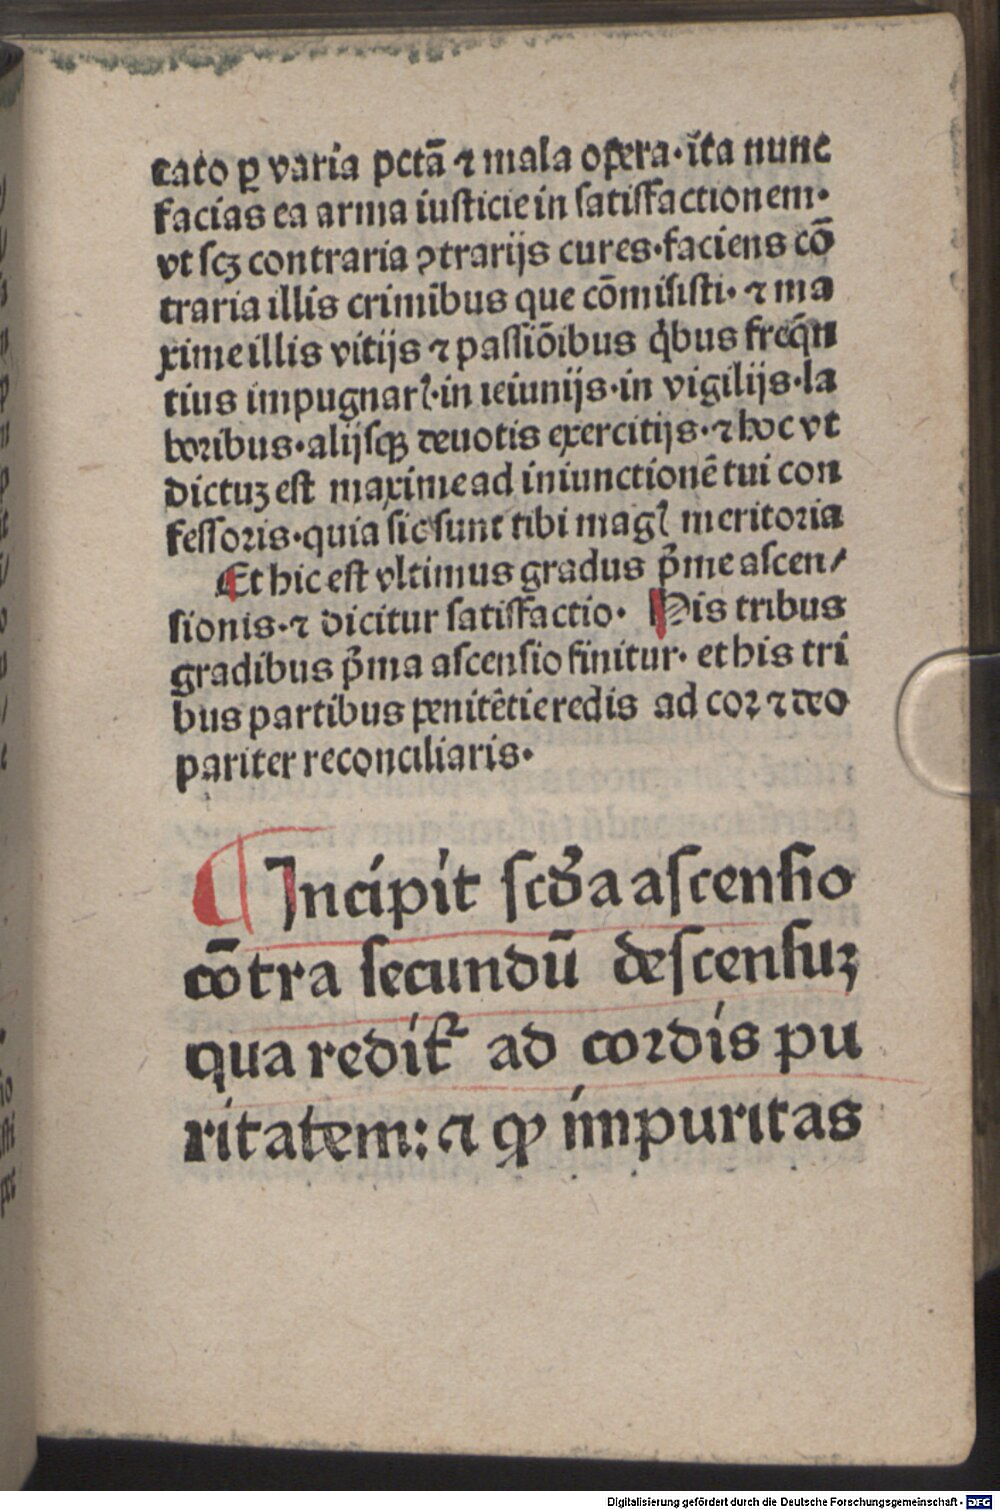 cato ꝑ varia pctā ⁊ mala opera·ita nunc
facias ea arma iusticie in satisfactionem·
vt scꝫ contraria ꝯtrarijs cures·faciens cō
traria illis criminibus que cōmisisti· ⁊ ma
xime illis vitijs ⁊ passiōibus qͥbus freq̄n
tius impugnarꝭ·in ieiunijs·in vigilijs·la
boribus·alijsqꝫ deuotis exercitijs·⁊ hoc vt
dictuꝫ est maxime ad iniunctionē tui con
fessoris·quia sic sunt tibi magꝭ meritoria
Et hic est vltimus gradus p̄me ascen/
sionis·⁊ dicitur satisfactio· His tribus
gradibus p̄ma ascensio finitur· et his tri
bus partibus penitētie redis ad cor ⁊ deo
pariter reconciliaris·
¶ Incipit scd̄a ascensio
cōtra secundū descensuꝫ
qua redit᷑ ad cordis pu
ritatem: ⁊ ꝙ impuritas
Digitalisierung gefördert durch die Deutsche Forschungsgemeinschaft - DFG